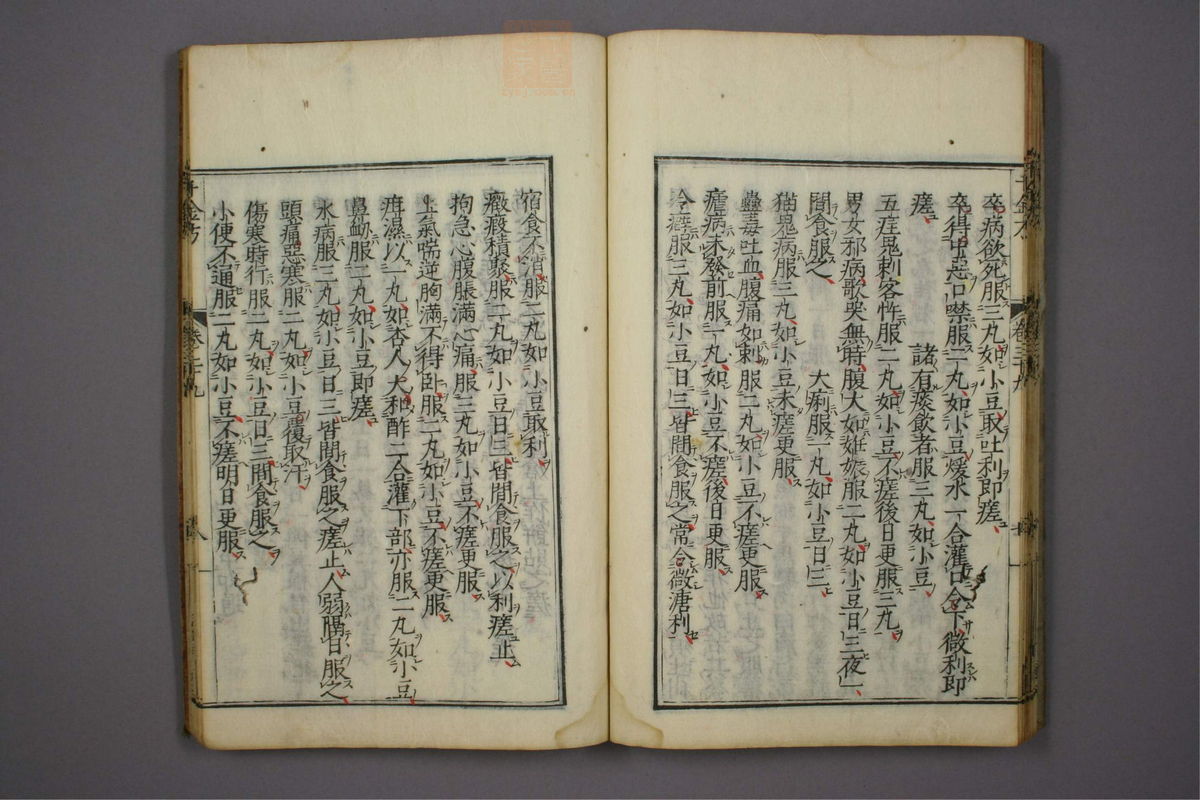 卒病飲死服三丸如小豆取吐利即瘥
卒得中惡口噤服二丸如小豆煖水一合灌口令下微利即
瘥　諸有痰飲者服三丸如小豆
五疰鬼刺客忤服二丸如小豆不瘥後日更服三丸
男女邪病歌哭無時腹大如妊娠服二丸如小豆日三夜一
間食服之　大痢服一丸如小豆日三
猫鬼病服三丸如小豆未瘥更服
蠱毒吐血腹痛如刺服二丸如小豆不瘥更服
瘧病未發前服一丸如小豆不瘥後日更服
冷癖服三丸如小豆日三皆間食服之常令微溏利
宿食不消服二丸如小豆取利
癥瘕積聚服二丸如小豆日三皆間食服之以利瘥止
拘急心腹脹滿心痛服三丸如小豆不瘥更服
上氣喘逆胸滿不得卧服二丸如小豆不瘥更服
疳濕以一丸如杏人大和酢二合灌下部亦服二丸如小豆
鼻衄服二丸如小豆即瘥
水病服三丸如小豆日三皆間食服之瘥止人弱隔日服之
頭痛惡寒服二丸如小豆覆取汗
傷寒時行服二丸如小豆日三間食服之
小便不通服二丸如小豆不瘥明日更服
千金方
卷三十九